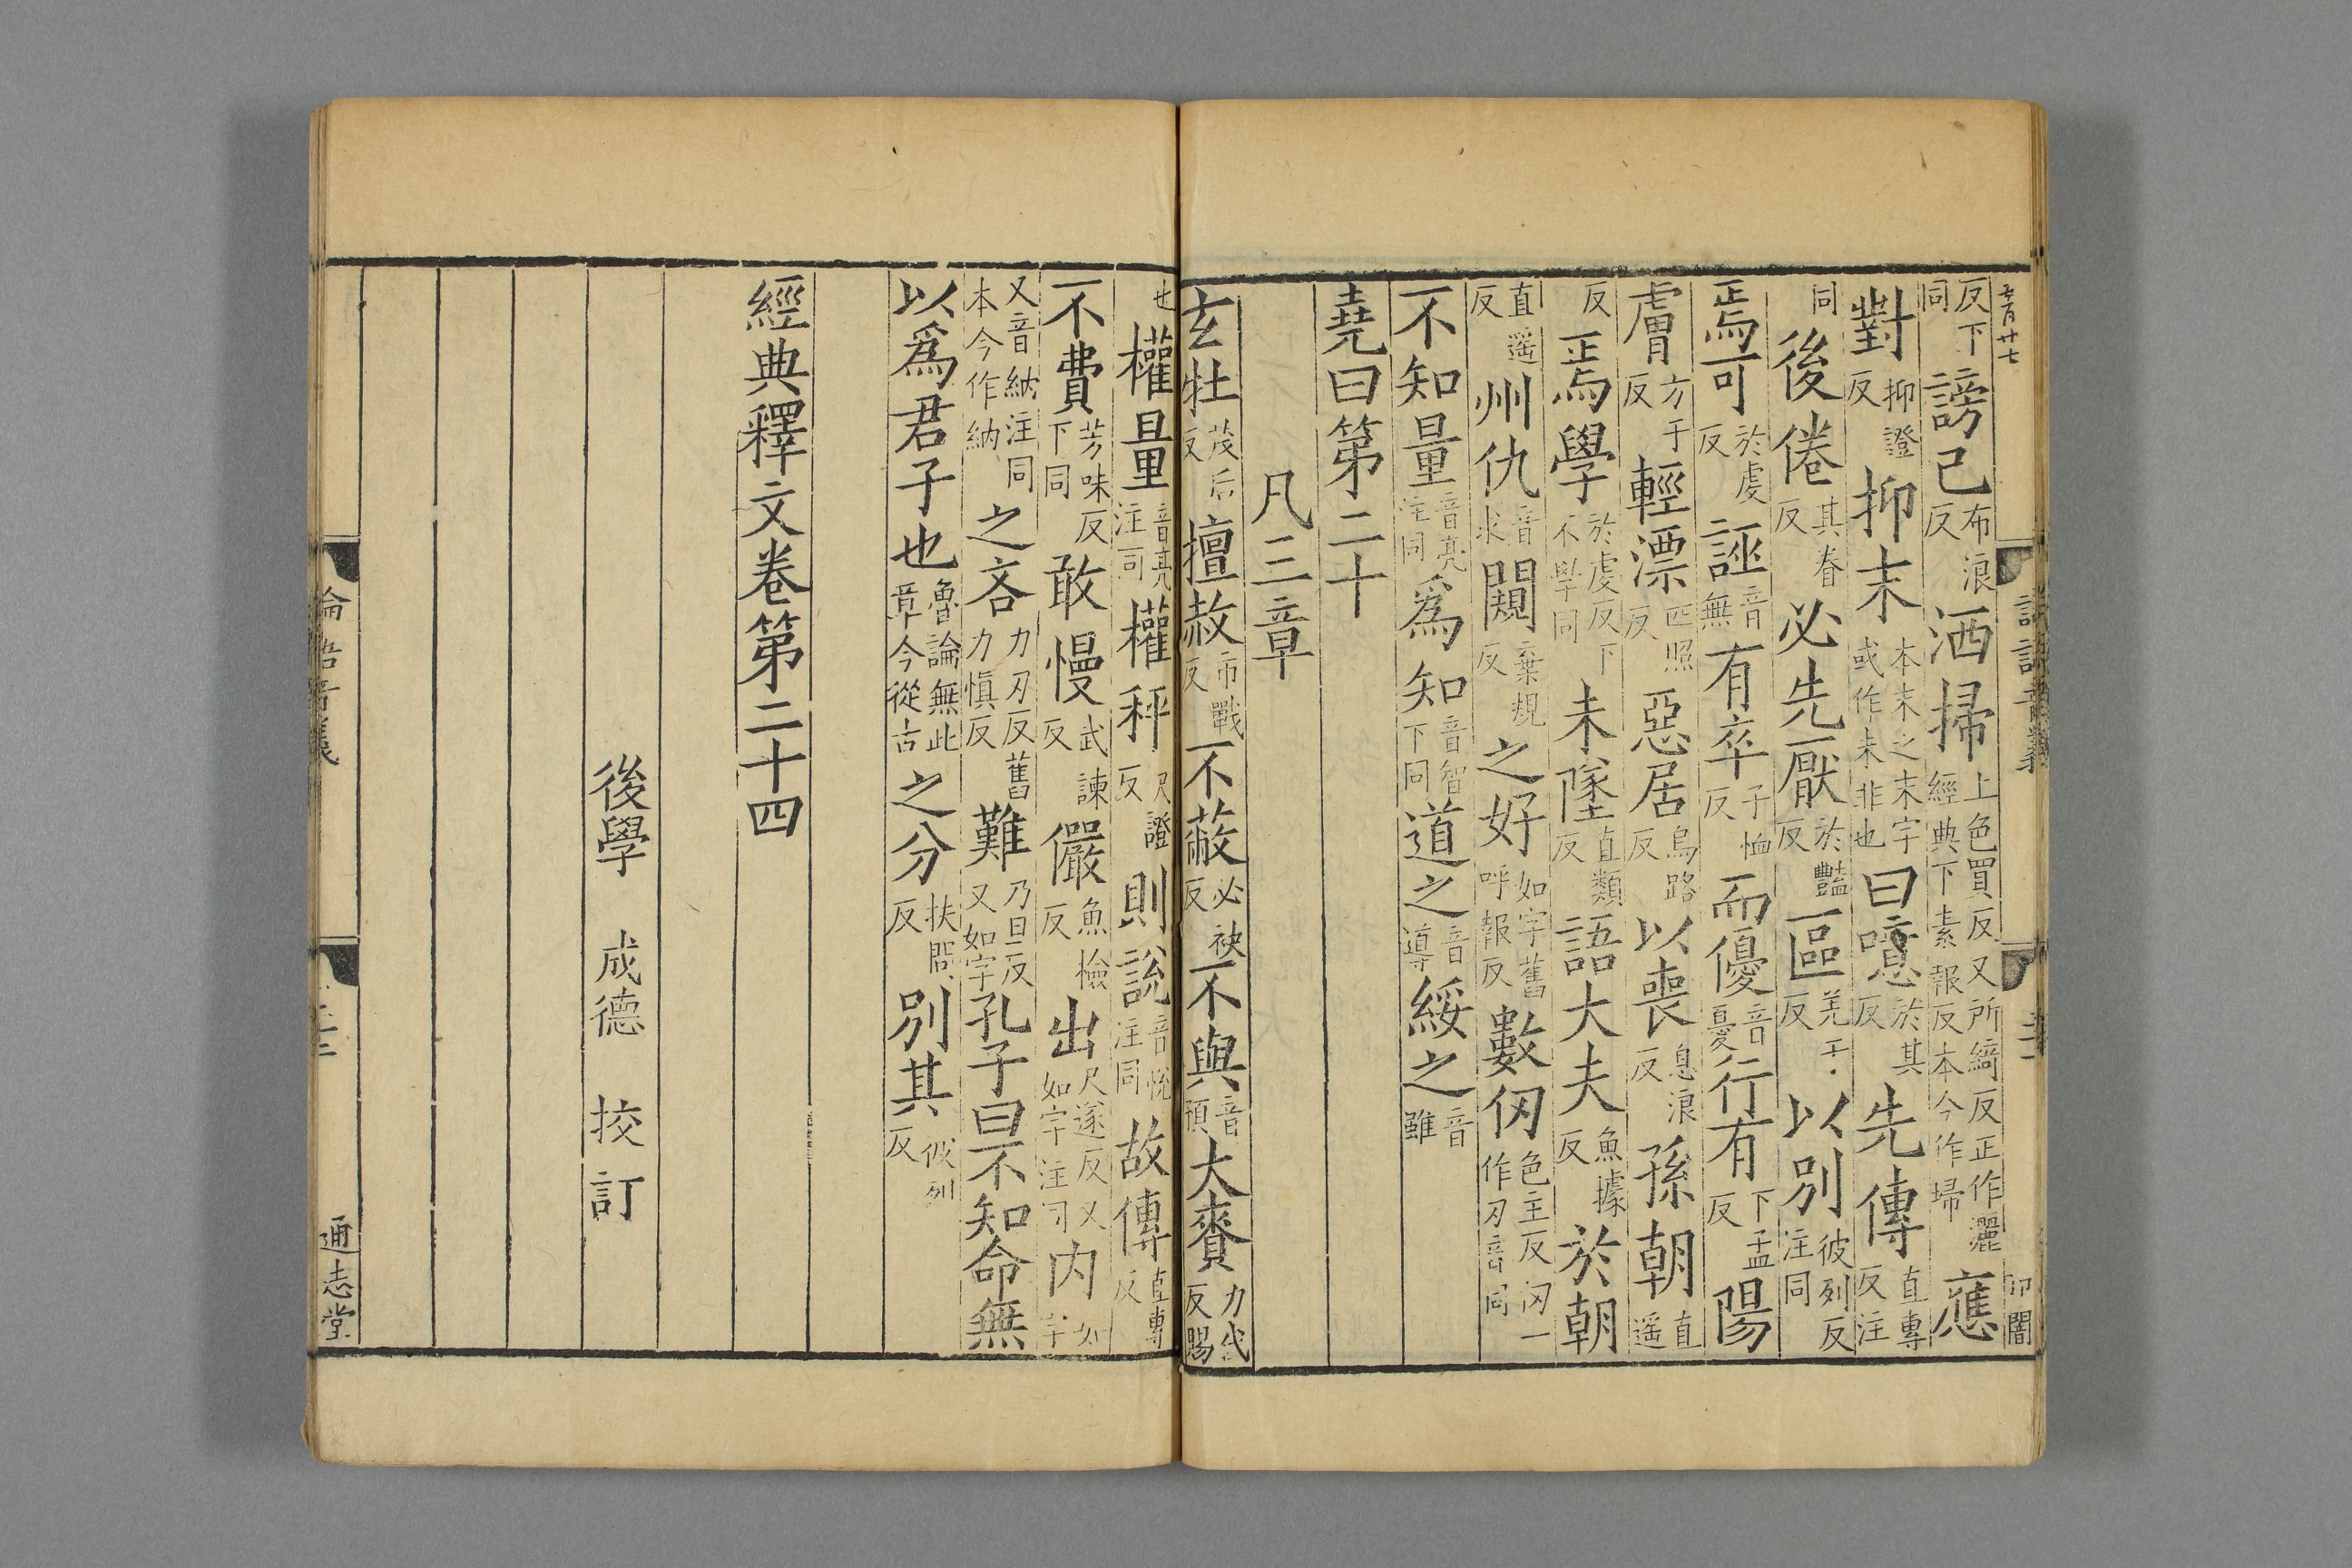 反下同謗己布浪反洒掃上色買反又所綺反正作灑經典下素報反本今作埽應
對抑證反抑末本末之末字或作未非也曰噫於其反先傳直專反注
同後倦其眷反必先厭於豔反區羌于反以別彼列反注同
焉可於虔反誣音無有卒子恤反而優音憂行有下孟反陽
膚方于反輕漂匹照反惡居烏路反以喪息浪反孫朝直遥
反焉學於虔反下不學同未墜直類反語大夫魚據反於朝
直遥反州仇音求闚棄規反之好如字舊呼報反數仞色主反仞一作刃音同
不知量音亮注同爲知音智下同道之音導綏之音雖
堯曰第二十
凡三章
玄牡茂后反擅赦市戰反不蔽必袂反不與音預大賚力代反賜
也權量音亮注同權秤尺證反則說音悅注同故傳直專反
不費芳味反下同敢慢武諫反儼魚檢反出尺遂反又如字注同内如字
又音納注同本今作納之吝力刃反舊力慎反難乃旦反又如字孔子曰不知命無
以爲君子也魯論無此章今從古之分扶問反別其彼列反
經典釋文卷第二十四
後學 成德 挍訂
論語音義
通志堂